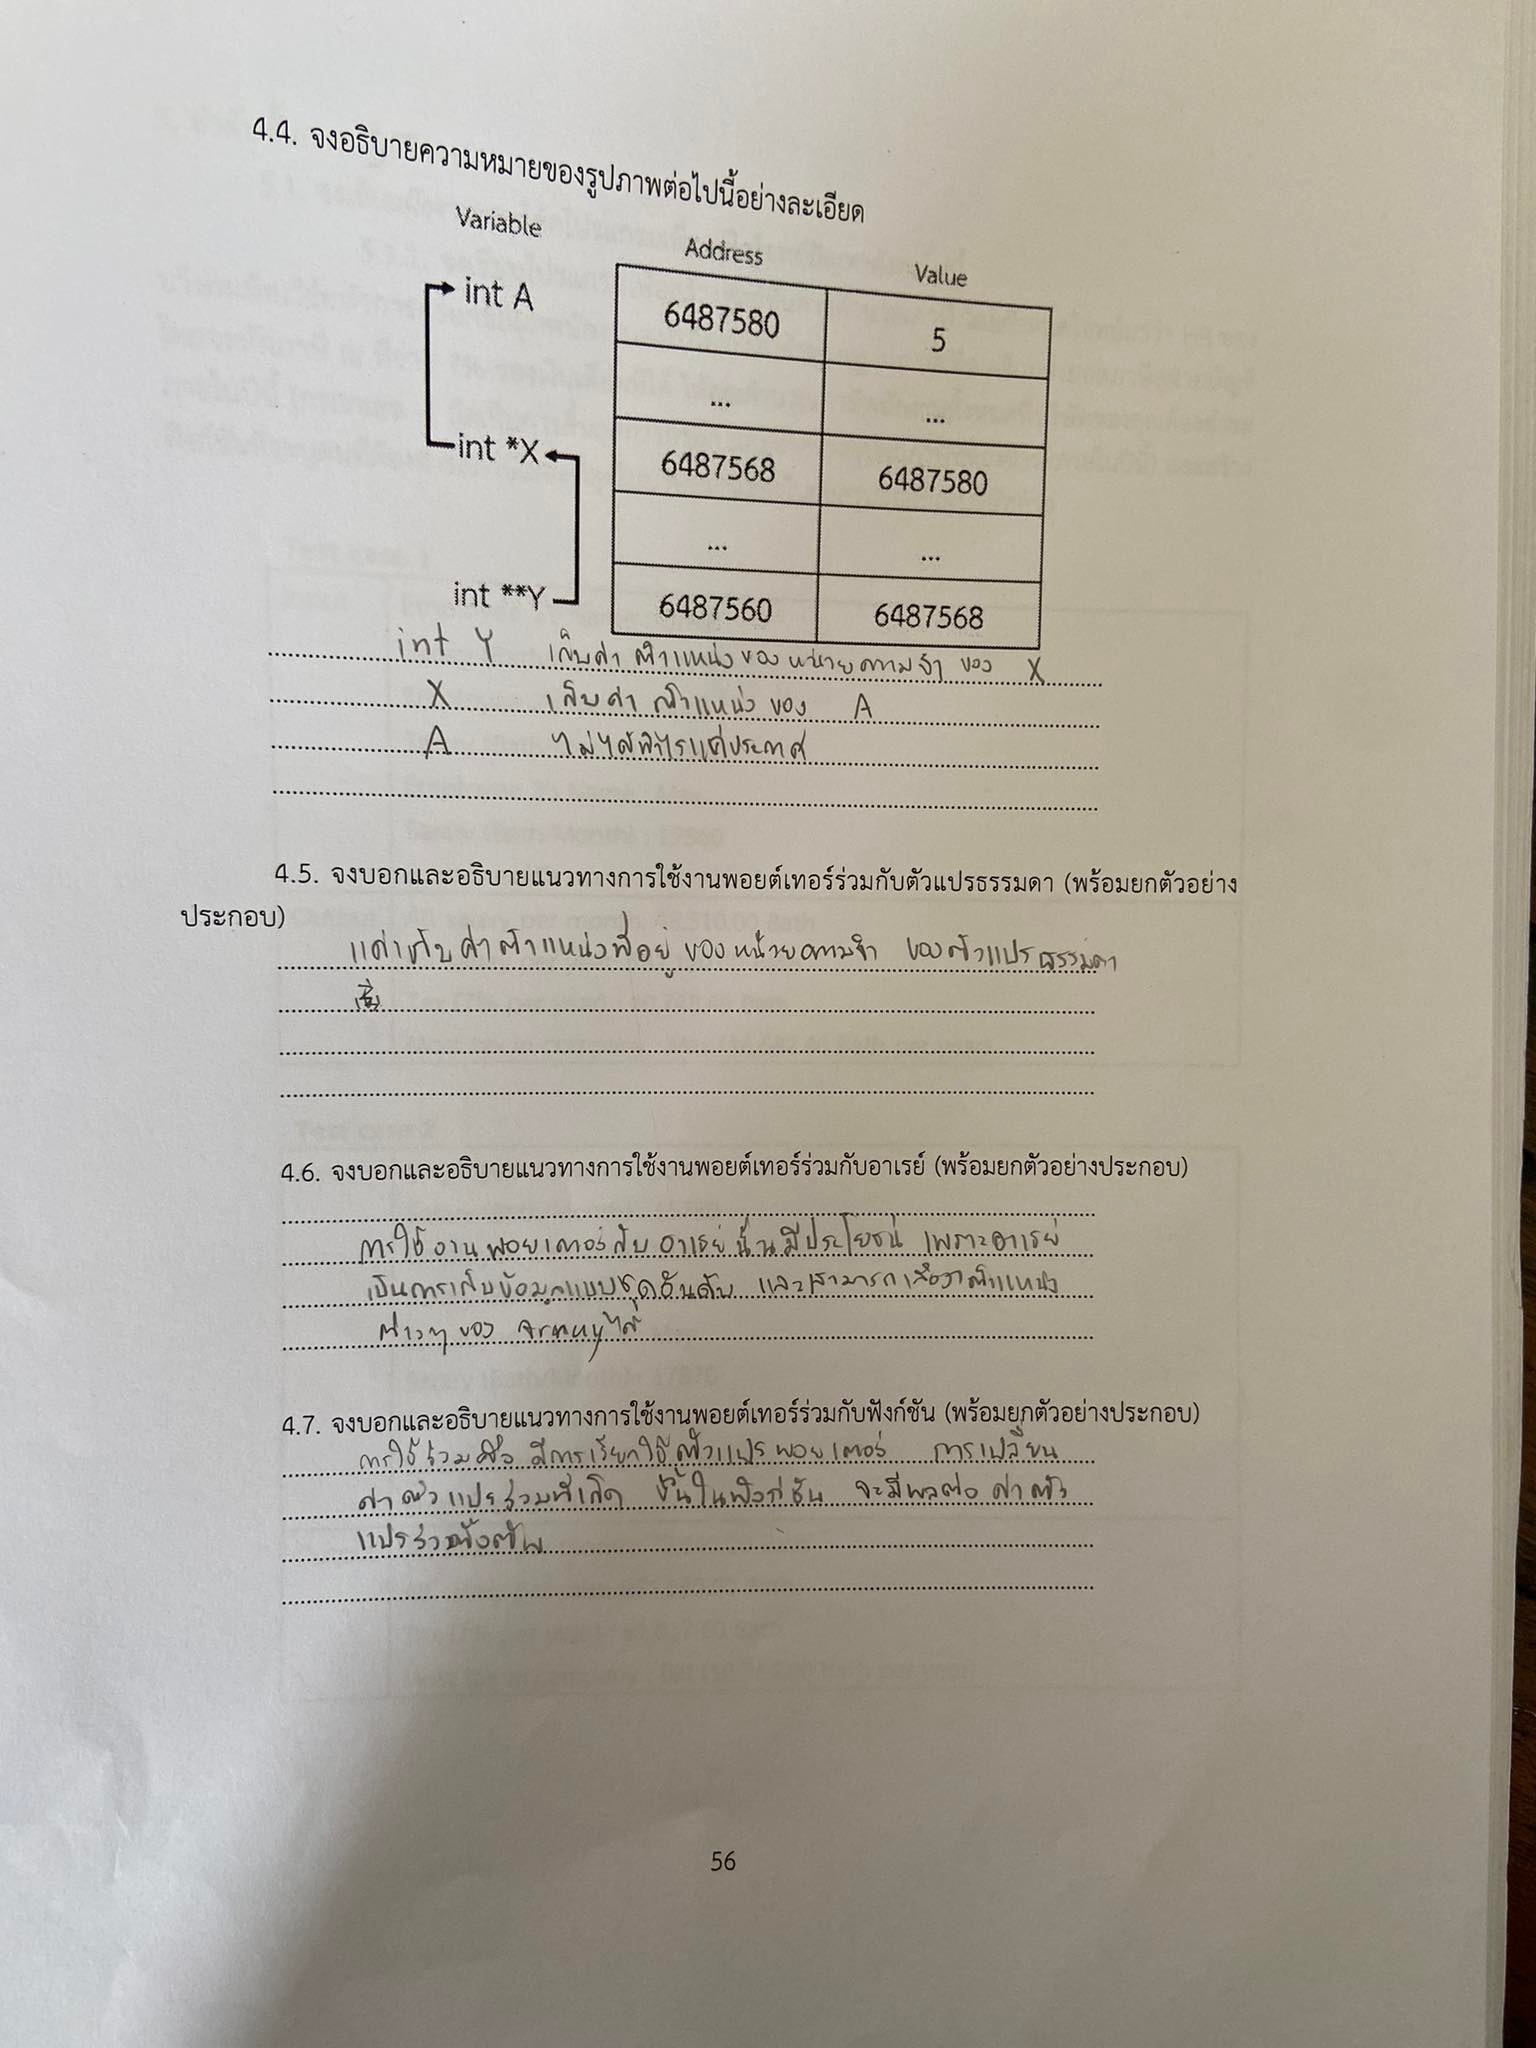 4.4. จงอธิบายความหมายของรูปภาพต่อไปนี้อย่างละเอียด
Variable Address Value
int A 6487580 5
... ...
int *X 6487568 6487580
... ...
int **Y 6487560 6487568
int Y เก็บค่า ตำแหน่งของ หน่วยความจำ ของ X
X เก็บค่า ตำแหน่งของ A
A ไม่ได้ทำไรแค่ประกาศ
4.5. จงบอกและอธิบายแนวทางการใช้งานพอยต์เทอร์ร่วมกับตัวแปรธรรมดา (พร้อมยกตัวอย่าง
ประกอบ)
แค่เก็บ ค่าตำแหน่งที่อยู่ ของ หน่วยความจำ ของตัวแปรธรรมดา
4.6. จงบอกและอธิบายแนวทางการใช้งานพอยต์เทอร์ร่วมกับอาเรย์ (พร้อมยกตัวอย่างประกอบ)
การใช้งาน พอยเตอร์กับ อาเรย์ นั้นมีประโยชน์ เพราะอาเรย์
เป็นการเก็บข้อมูลแบบชุดอันดับ และสามารถ ตำแหน่ง
ต่างๆ ของ ได้
4.7. จงบอกและอธิบายแนวทางการใช้งานพอยต์เทอร์ร่วมกับฟังก์ชัน (พร้อมยกตัวอย่างประกอบ)
การใช้ร่วมคือ มีการเรียกใช้ตัวแปร พอยเตอร์ การเปลี่ยน
ค่าตัวแปรร่วมที่เกิด ขึ้นในฟังก์ชัน จะมีผลต่อ ค่าตัว
แปรร่วม
56